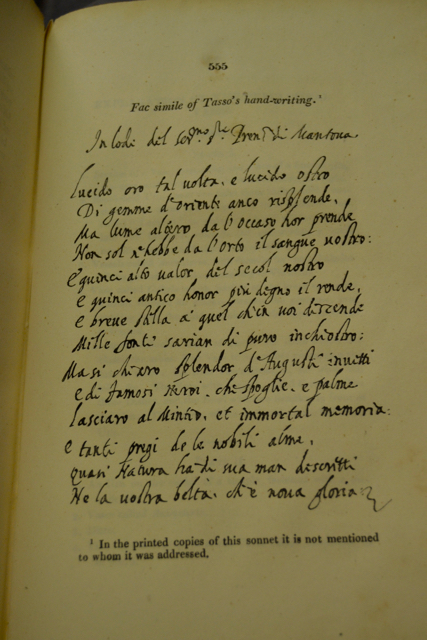 555
Fac simile of Tasso's hand-writing.¹
In lode del Ser.mo S.re Pren.e di Mantova.
Lucido oro tal volta, e lucido ostro
Di gemme d'oriente anco risplende,
Ma lume altero, da l'occaso hor prende
Non sol n'hebbe da l'orto il sangue vostro:
E quinci alto valor, del secol nostro
E quinci antico honor piu degno il rende,
E breve stilla a quel ch'in voi descende
Mille fonti sarian di puro inchiostro:
Ma si chiaro splendor d'Augusti invitti
E di famosi Heroi, che spoglie, e palme
Lasciaro al Mintio, et immortal memoria:
E tanti pregi de le nobili alme,
Quasi Natura ha di sua man descritti
Ne la vostra beltà, ch'è nova gloria
¹ In the printed copies of this sonnet it is not mentioned
to whom it was addressed.